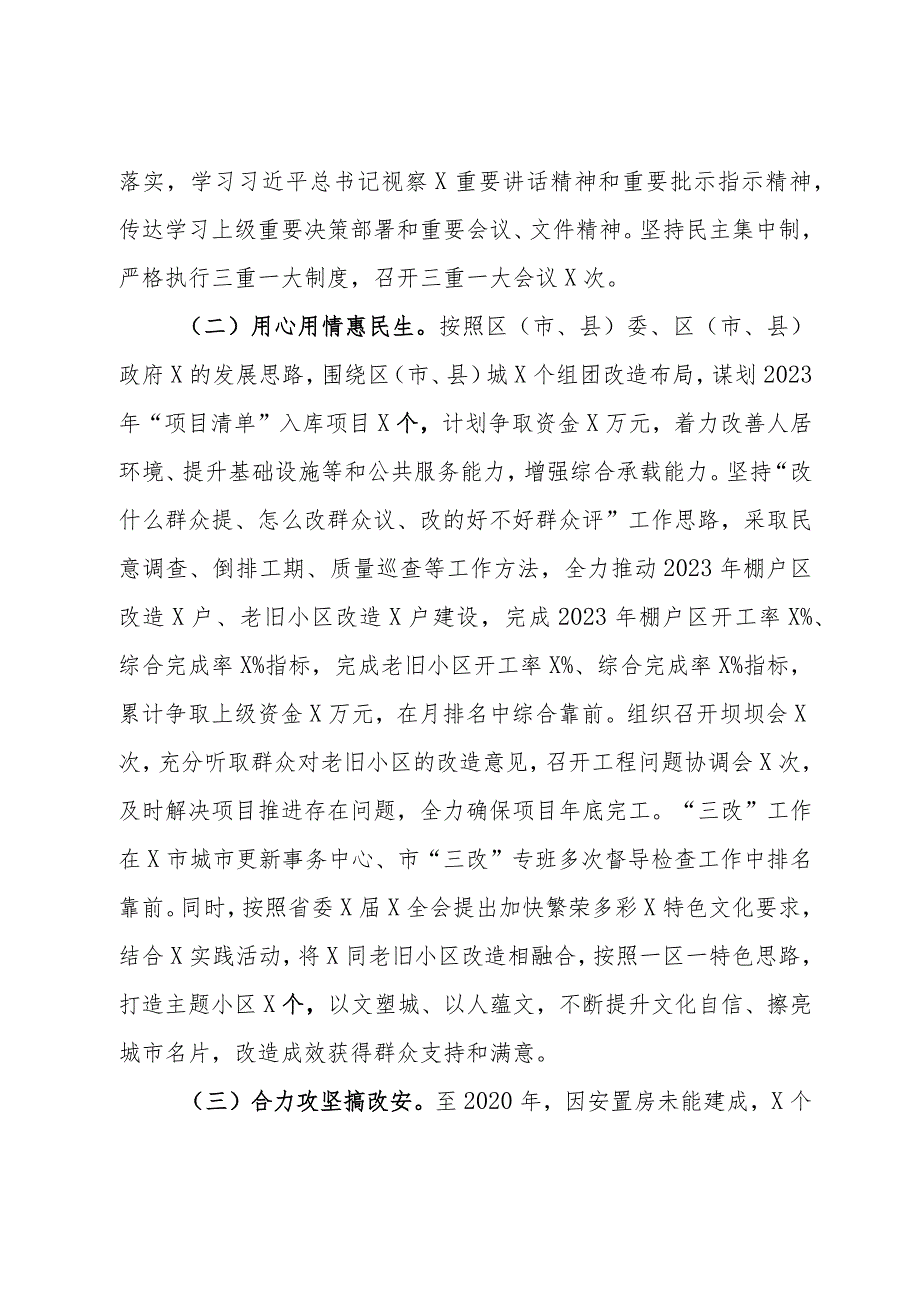 落实，学习习近平总书记视察X重要讲话精神和重要批示指示精神，
传达学习上级重要决策部署和重要会议、文件精神。坚持民主集中制，
严格执行三重一大制度，召开三重一大会议X次。
（二）用心用情惠民生。按照区（市、县）委、区（市、县）
政府X的发展思路，围绕区（市、县）城X个组团改造布局，谋划2023
年“项目清单”入库项目X个，计划争取资金X万元，着力改善人居
环境、提升基础设施等和公共服务能力，增强综合承载能力。坚持“改
什么群众提、怎么改群众议、改的好不好群众评”工作思路，采取民
意调查、倒排工期、质量巡查等工作方法，全力推动2023年棚户区
改造X户、老旧小区改造X户建设，完成2023年棚户区开工率X%、
综合完成率X%指标，完成老旧小区开工率X%、综合完成率X%指标，
累计争取上级资金X万元，在月排名中综合靠前。组织召开坝坝会X
次，充分听取群众对老旧小区的改造意见，召开工程问题协调会X次，
及时解决项目推进存在问题，全力确保项目年底完工。“三改”工作
在X市城市更新事务中心、市“三改”专班多次督导检查工作中排名
靠前。同时，按照省委X届X全会提出加快繁荣多彩X特色文化要求，
结合X实践活动，将X同老旧小区改造相融合，按照一区一特色思路，
打造主题小区X个，以文塑城、以人蕴文，不断提升文化自信、擦亮
城市名片，改造成效获得群众支持和满意。
（三）合力攻坚搞改安。至2020年，因安置房未能建成，X个